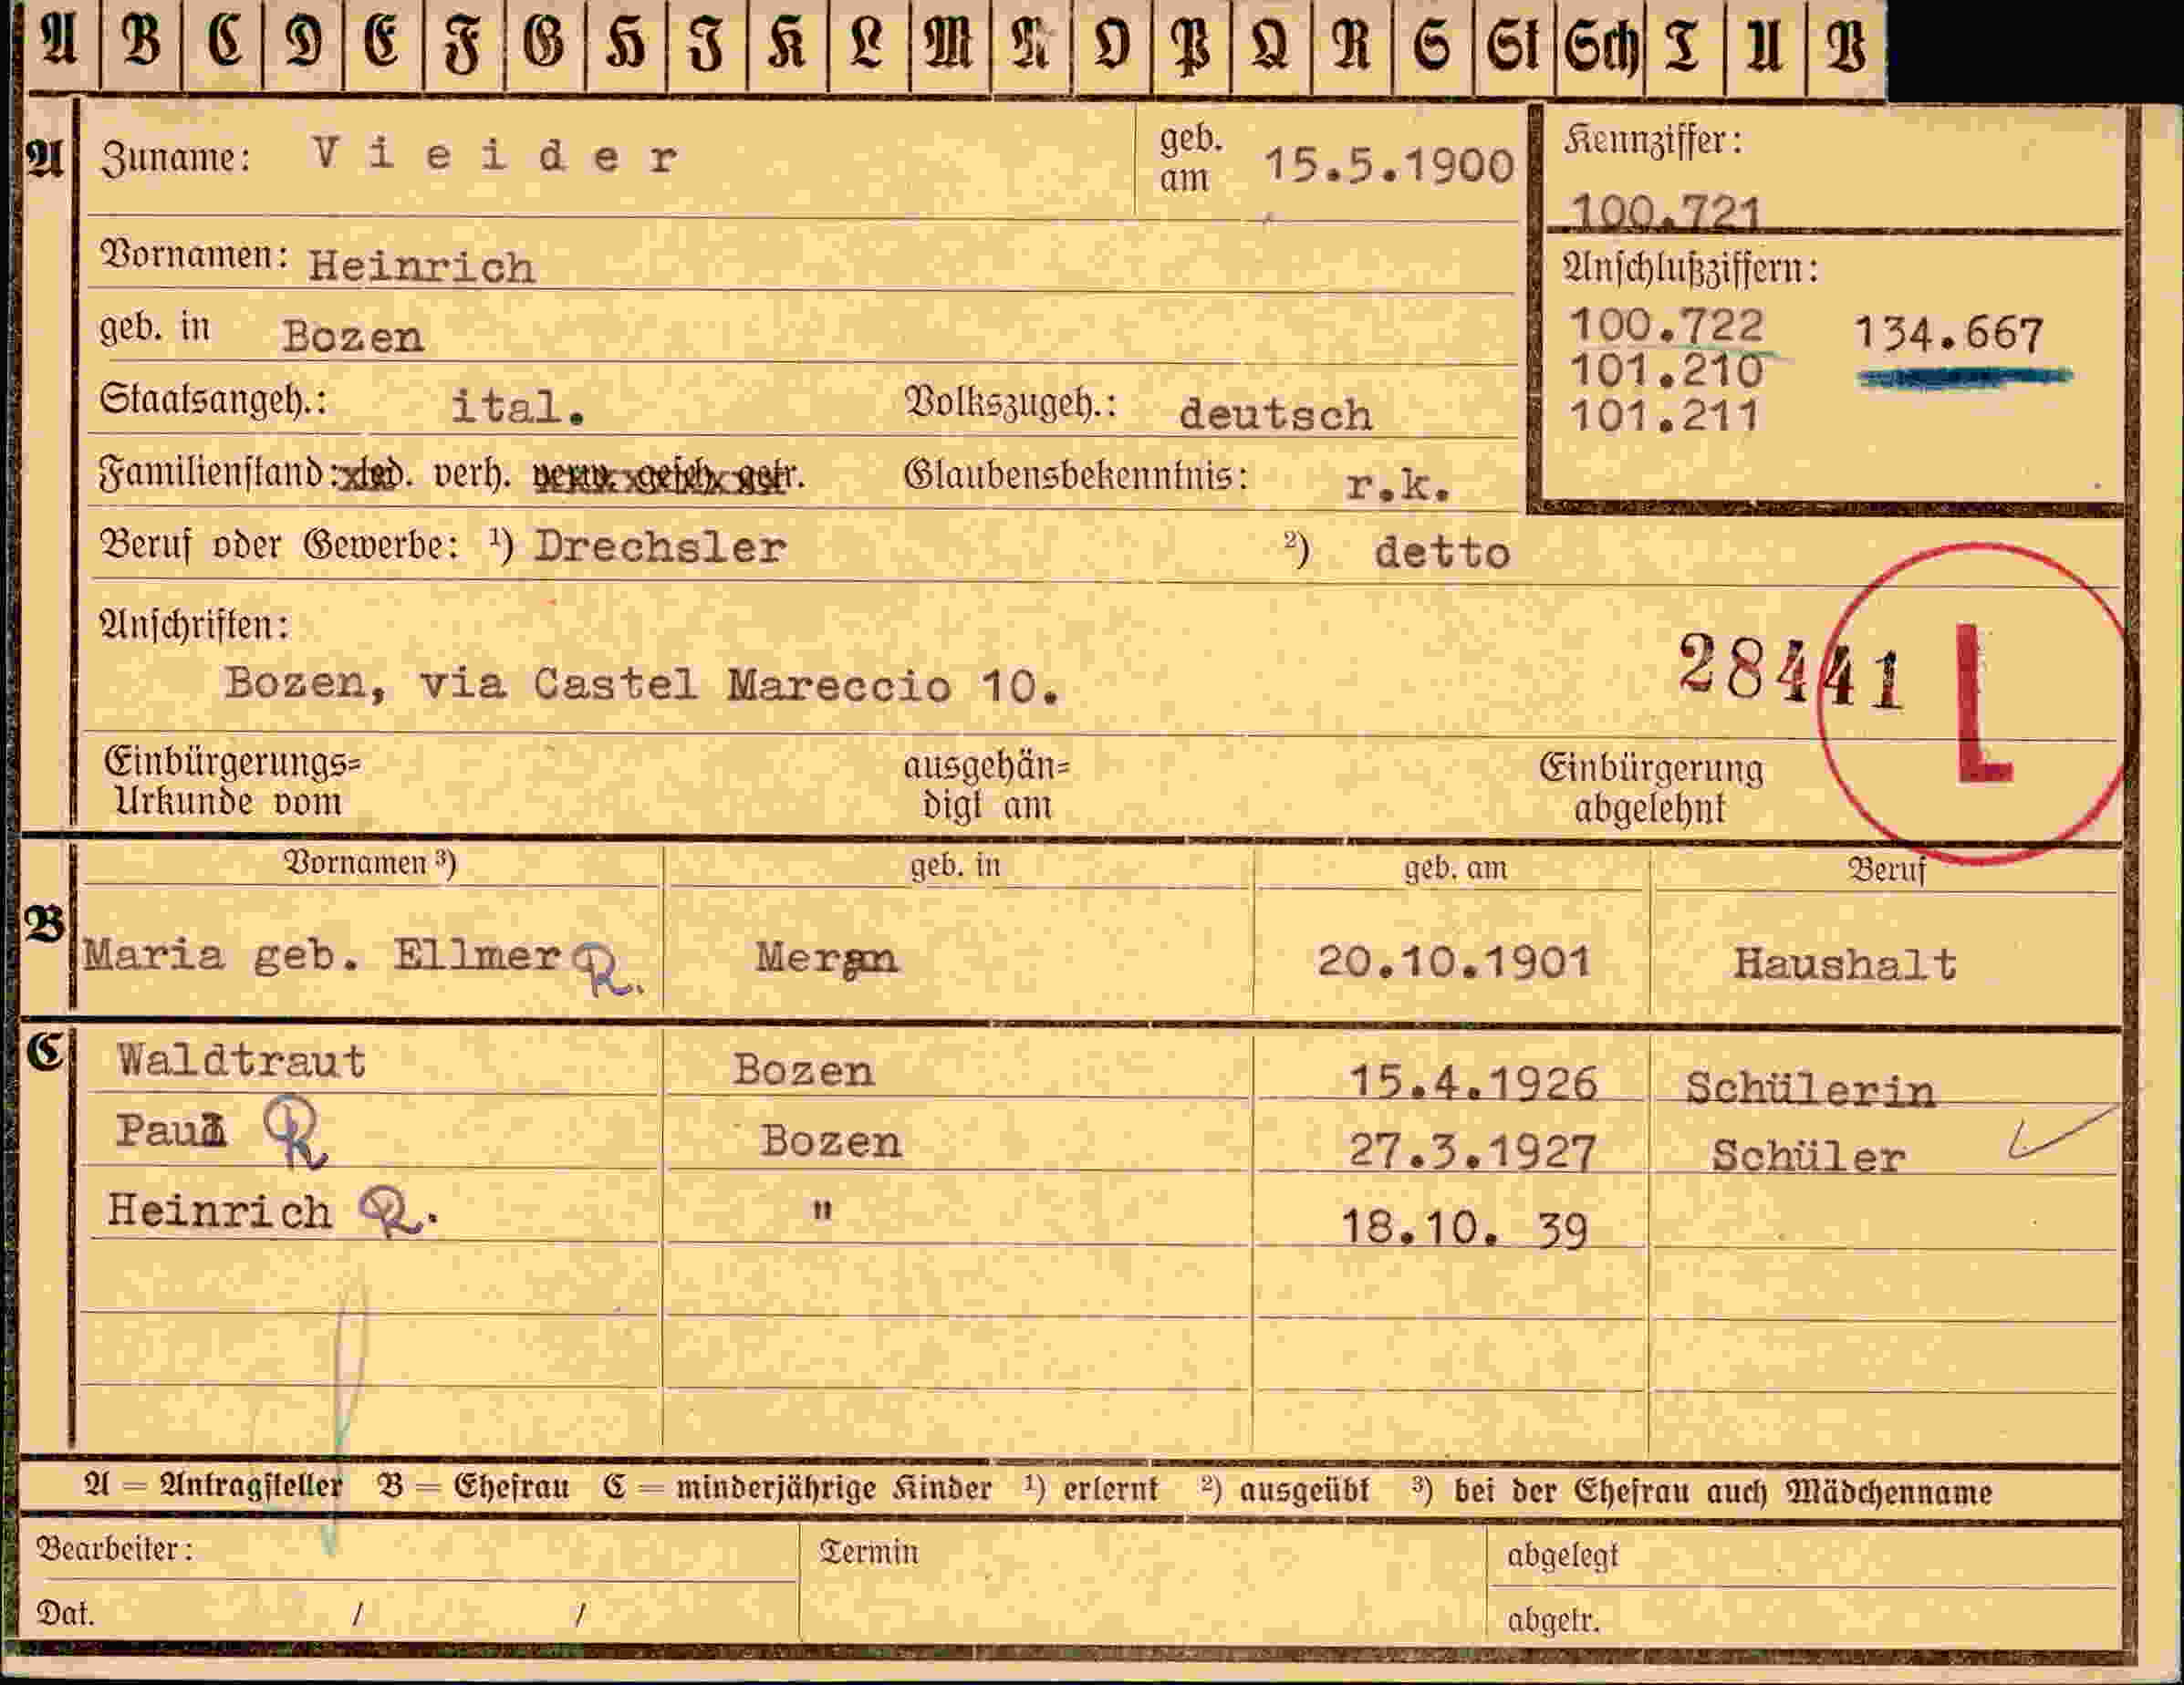 A B C D E F G H J K L M N O P Q R S St Sch T U V
A Zuname: Vieider geb. am 15.5.1900
Kennziffer:
100.721
Vornamen: Heinrich
Anschlußziffern:
geb. in Bozen
100.722 134.667
101.210
101.211
Staatsangeh.: ital. Volkszugeh.: deutsch
Familienstand: led. verh. verw. gesch. getr. Glaubensbekenntnis: r.k.
Beruf oder Gewerbe: ¹) Drechsler ²) detto
Anschriften:
28441 L
Bozen, via Castel Mareccio 10.
Einbürgerungs= ausgehän= Einbürgerung
Urkunde vom digt am abgelehnt
Vornamen ³) geb. in geb. am Beruf
B
Maria geb. Ellmer R. Meran 20.10.1901 Haushalt
C Waldtraut Bozen 15.4.1926 Schülerin
Paul R Bozen 27.3.1927 Schüler
Heinrich R. " 18.10. 39
A = Antragsteller B = Ehefrau C = minderjährige Kinder ¹) erlernt ²) ausgeübt ³) bei der Ehefrau auch Mädchenname
Bearbeiter: Termin abgelegt
Dat. / / abgetr.